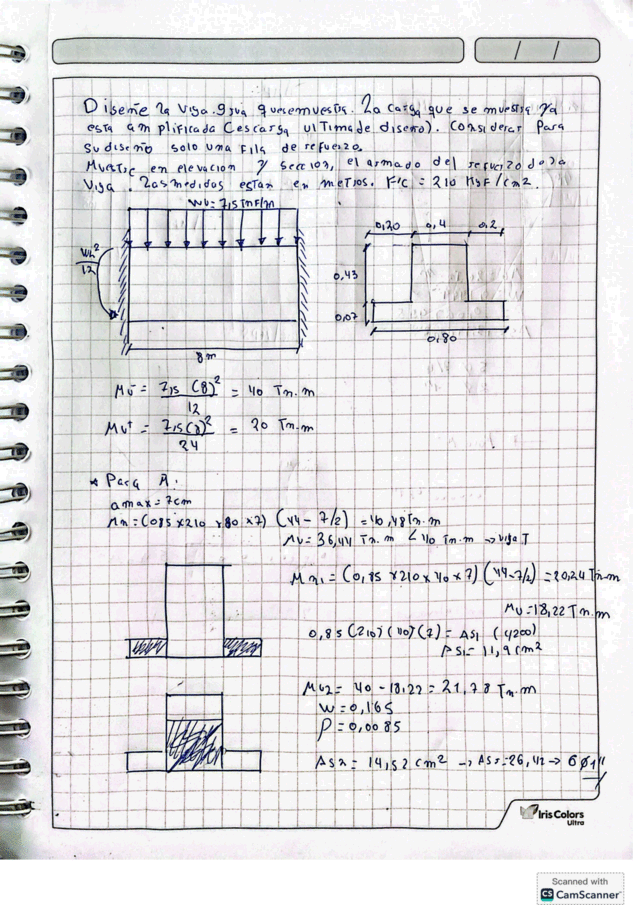 Diseñe la viga guia que se muestra. La carga que se muestra ya
esta amplificada (es carga ultima de diseño). Considerar para
su diseño solo una fila de refuerzo.
Muestre en elevacion y seccion, el armado del refuerzo de la
viga. Las medidas estan en metros. F'C = 210 Kgf/cm2.
Wu=7,5 Tnf/m
0,20 0,4 0,2
WL²/12
0,43
0,07
0,80
8m
Mu⁻ = 7,5 (8)²/12 = 40 Tn.m
Mu⁺ = 7,5(8)²/24 = 20 Tn.m
* Para A:
amax = 7cm
Mn = (0,85 x 210 x 80 x 7) (44 - 7/2) = 40,48 Tn.m
Mu = 36,44 Tn.m < 40 Tn.m → viga T
Mn1 = (0,85 x 210 x 40 x 7) (44-7/2) = 20,24 Tn.m
Mu = 18,22 Tn.m
0,85 (210) (40) (7) = AS1 (4200)
AS1 = 11,9 cm²
Mu2 = 40 - 18,22 = 21,78 Tn.m
W = 0,165
ρ = 0,0085
AS2 = 14,52 cm² → AS = 26,42 → 6 ∅ 1"
Iris Colors
Ultra
Scanned with
CS CamScanner